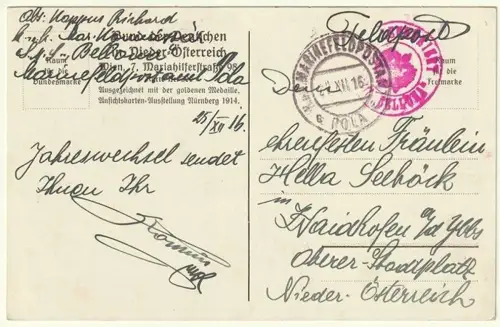 Abs: Kappus Richard
k.u.k. Mar.
Bund der Deutschen
in Nieder-Österreich
Wien, 7. Mariahilferstraße 98
S.M.S. Bellona
Marinefeldpostamt Pola
Raum
für die
Bundesmarke
Ausgezeichnet mit der goldenen Medaille.
Ansichtskarten-Ausstellung Nürnberg 1914.
25/XII 16.
Jahreswechsel sendet
Ihnen Ihr
Feldpost
MARINEFELDPOSTAMT
XII.16
POLA
BELLONA
Raum
für die
Freimarke
Dem
ehrenfesten Fräulein
Hella Seeböck
in
Waidhofen a/d Ybbs
Oberer-Stadtplatz
Nieder-Österreich